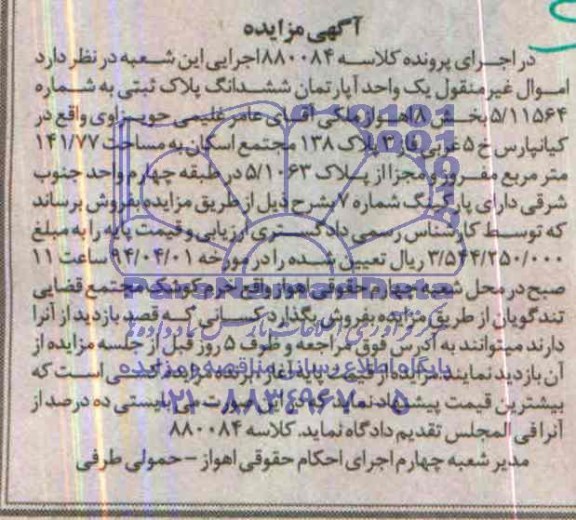 آگهی مزایده
در اجرای پرونده کلاسه ۸۸۰۰۸۴ اجرایی این شعبه در نظر دارد
اموال غیر منقول یک واحد آپارتمان ششدانگ پلاک ثبتی به شماره
۵/۱۱۵۶۴ بخش ۸ اهواز ملکی آقای عامر غلیمی حویزاوی واقع در
کیانپارس خ ۵ غربی فاز ۳ پلاک ۱۳۸ مجتمع اسکان به مساحت ۱۴۱/۷۷
متر مربع مفروز و مجزا از پلاک ۵/۱۰۶۳ در طبقه چهارم واحد جنوب
شرقی دارای پارکینگ شماره ۷ بشرح ذیل از طریق مزایده بفروش برساند
که توسط کارشناس رسمی دادگستری ارزیابی و قیمت پایه را به مبلغ
۳/۵۴۴/۲۵۰/۰۰۰ ریال تعیین شده را در مورخه ۹۴/۰۴/۰۱ ساعت ۱۱
صبح در محل شعبه چهارم حقوقی اهواز واقع خرمکوشک مجتمع قضایی
تندگویان از طریق مزایده بفروش بگذارد کسانی که قصد بازدید از آنرا
دارند میتوانند به آدرس فوق مراجعه و ظرف ۵ روز قبل از جلسه مزایده از
آن بازدید نمایند مزایده از قیمت پایه آغاز برنده مزایده کسی است که
بیشترین قیمت پیشنهاد نماید که در این صورت می بایستی ده درصد از
آنرا فی المجلس تقدیم دادگاه نماید. کلاسه ۸۸۰۰۸۴
مدیر شعبه چهارم اجرای احکام حقوقی اهواز - حمولی طرفی
ParsNamadData
پایگاه اطلاع رسانی مناقصه و مزایده
۰۲۱-۸۸۳۴۹۶۷۰-۵